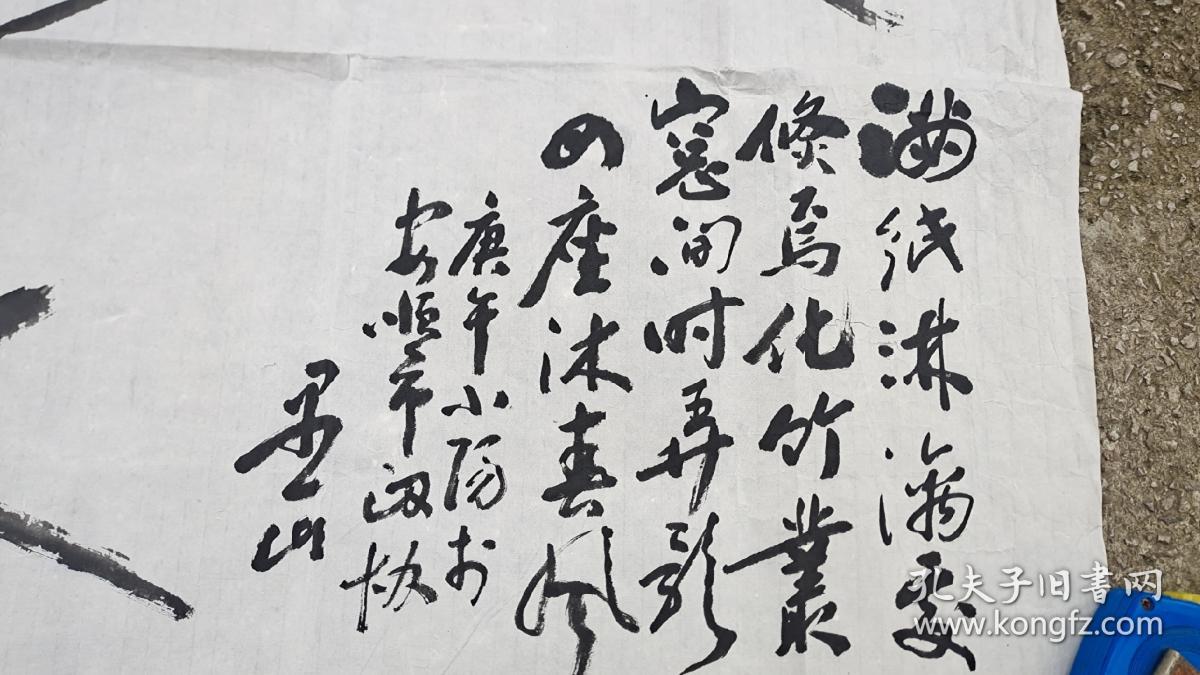 满纸淋漓处
倏焉化竹丛
窗间时弄影
四座沐春风
庚午小阳于
安顺市政协
墨山
孔夫子旧書网
www.kongfz.com